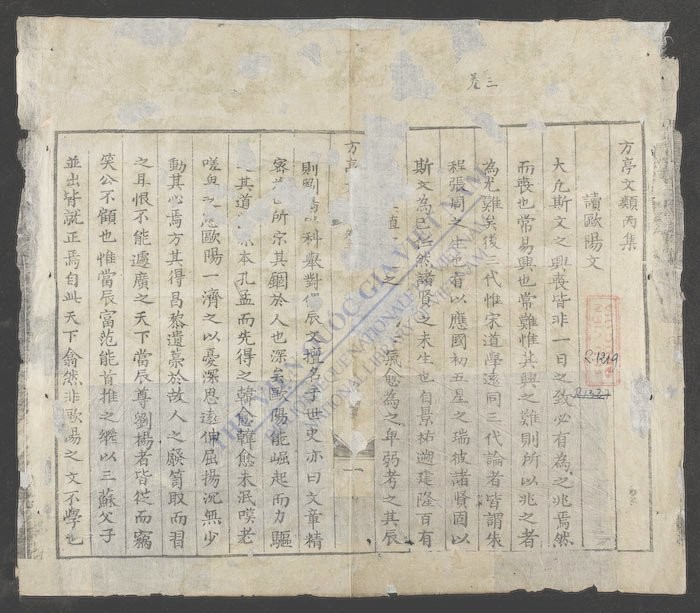 卷三
方亭文類丙集
讀歐陽文
大凡斯文之興喪皆非一日之致必有為之兆焉然
而喪也常易興也常難惟其興之難則所以兆之者
為尤難矣後三代惟宋道學遂同三代論者皆謂朱
程張周之生也有以應國初五星之瑞彼諸賢固以
斯文為己任然諸賢之未生也自景祐遡建隆百有
之氣愈為之卑弱考之其辰
方亭
則科舉對偶辰文擅名于世史亦曰文章精
所宗其錮於人也深矣歐陽能崛起而力驅
其道本孔孟而先得之韓愈韓愈未泯嘆老
嗟歐陽一濟之以憂深思遠伸屈揚沉無少
動其心焉方其得昌黎遺藁於故人之廢筒取而習
之耳恨不能遽廣之天下當辰尊劉楊者皆從而竊
笑公不顧也惟當辰富范能首推之繼以三蘇父子
並出皆就正焉自此天下翕然非歐陽之文不學也
R.1319
R.1327
THƯ VIỆN QUỐC GIA VIỆT NAM
BIBLIOTHÈQUE NATIONALE DU VIETNAM
NATIONAL LIBRARY OF VIETNAM